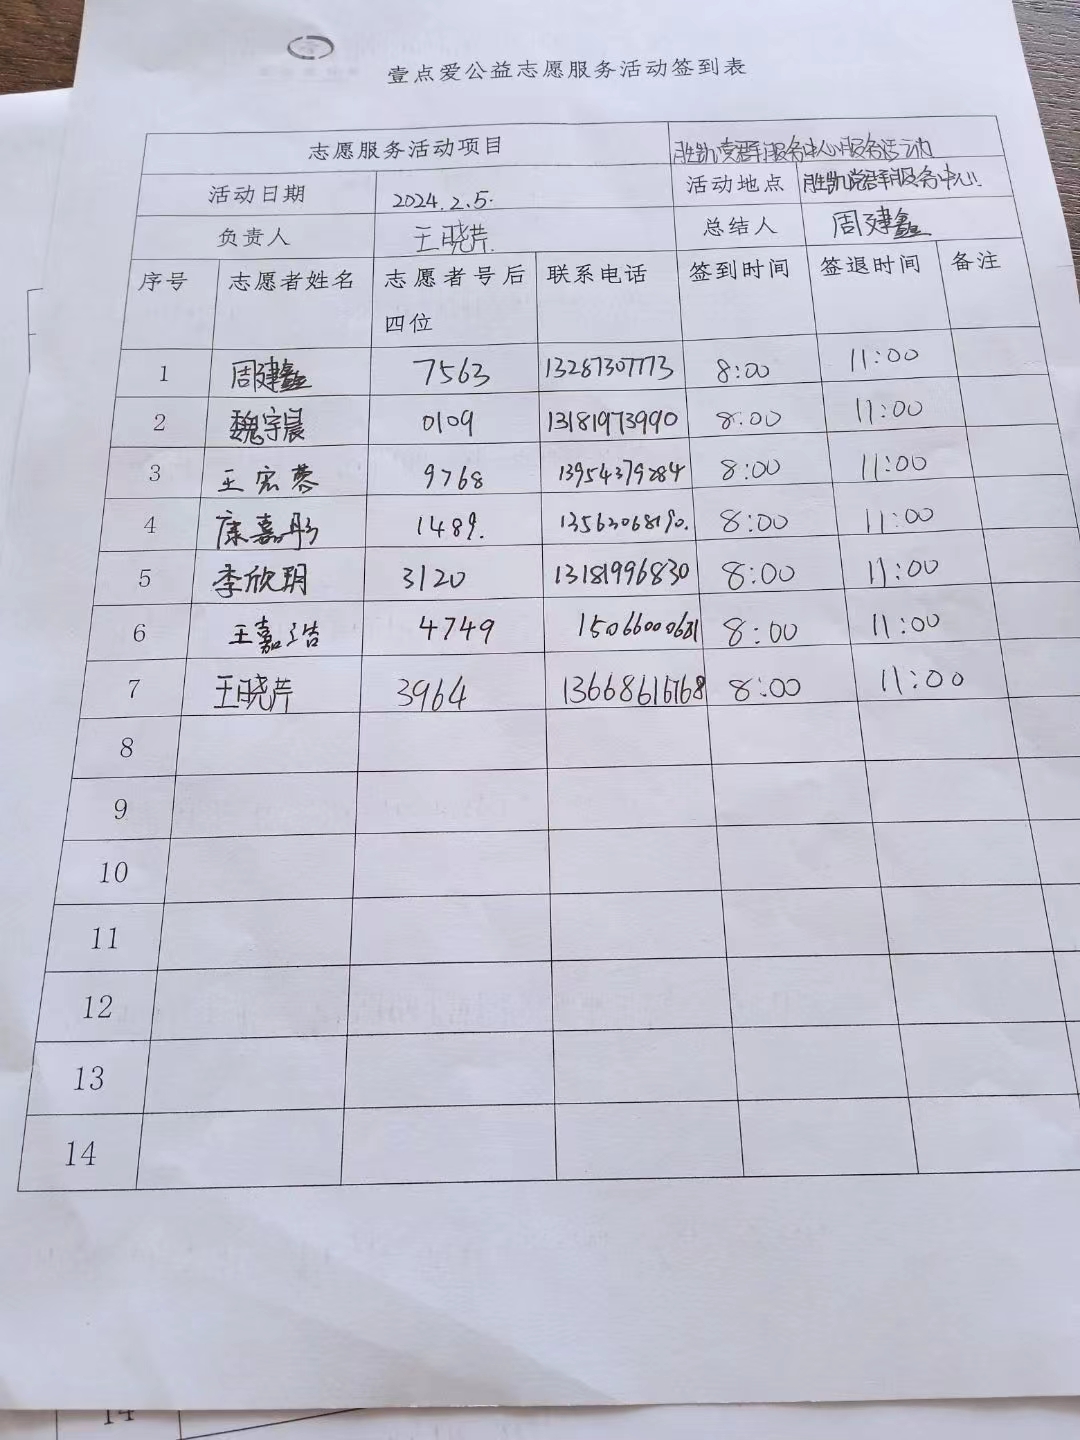 壹点爱公益志愿服务活动签到表
志愿服务活动项目 胜凯党群服务中心服务活动
活动日期 2024.2.5. 活动地点 胜凯党群服务中心
负责人 王晓芹 总结人 周建鑫
序号 志愿者姓名 志愿者号后 联系电话 签到时间 签退时间 备注
四位
1 周建鑫 7563 13287307773 8:00 11:00
2 魏宇晨 0109 13181973990 8:00 11:00
3 王宏蓉 9768 13954379284 8:00 11:00
4 康嘉彤 1489. 13563068190. 8:00 11:00
5 李欣玥 3120 13181996830 8:00 11:00
6 王嘉浩 4749 15066000681 8:00 11:00
7 王晓芹 3964 13668616768 8:00 11:00
8
9
10
11
12
13
14
14